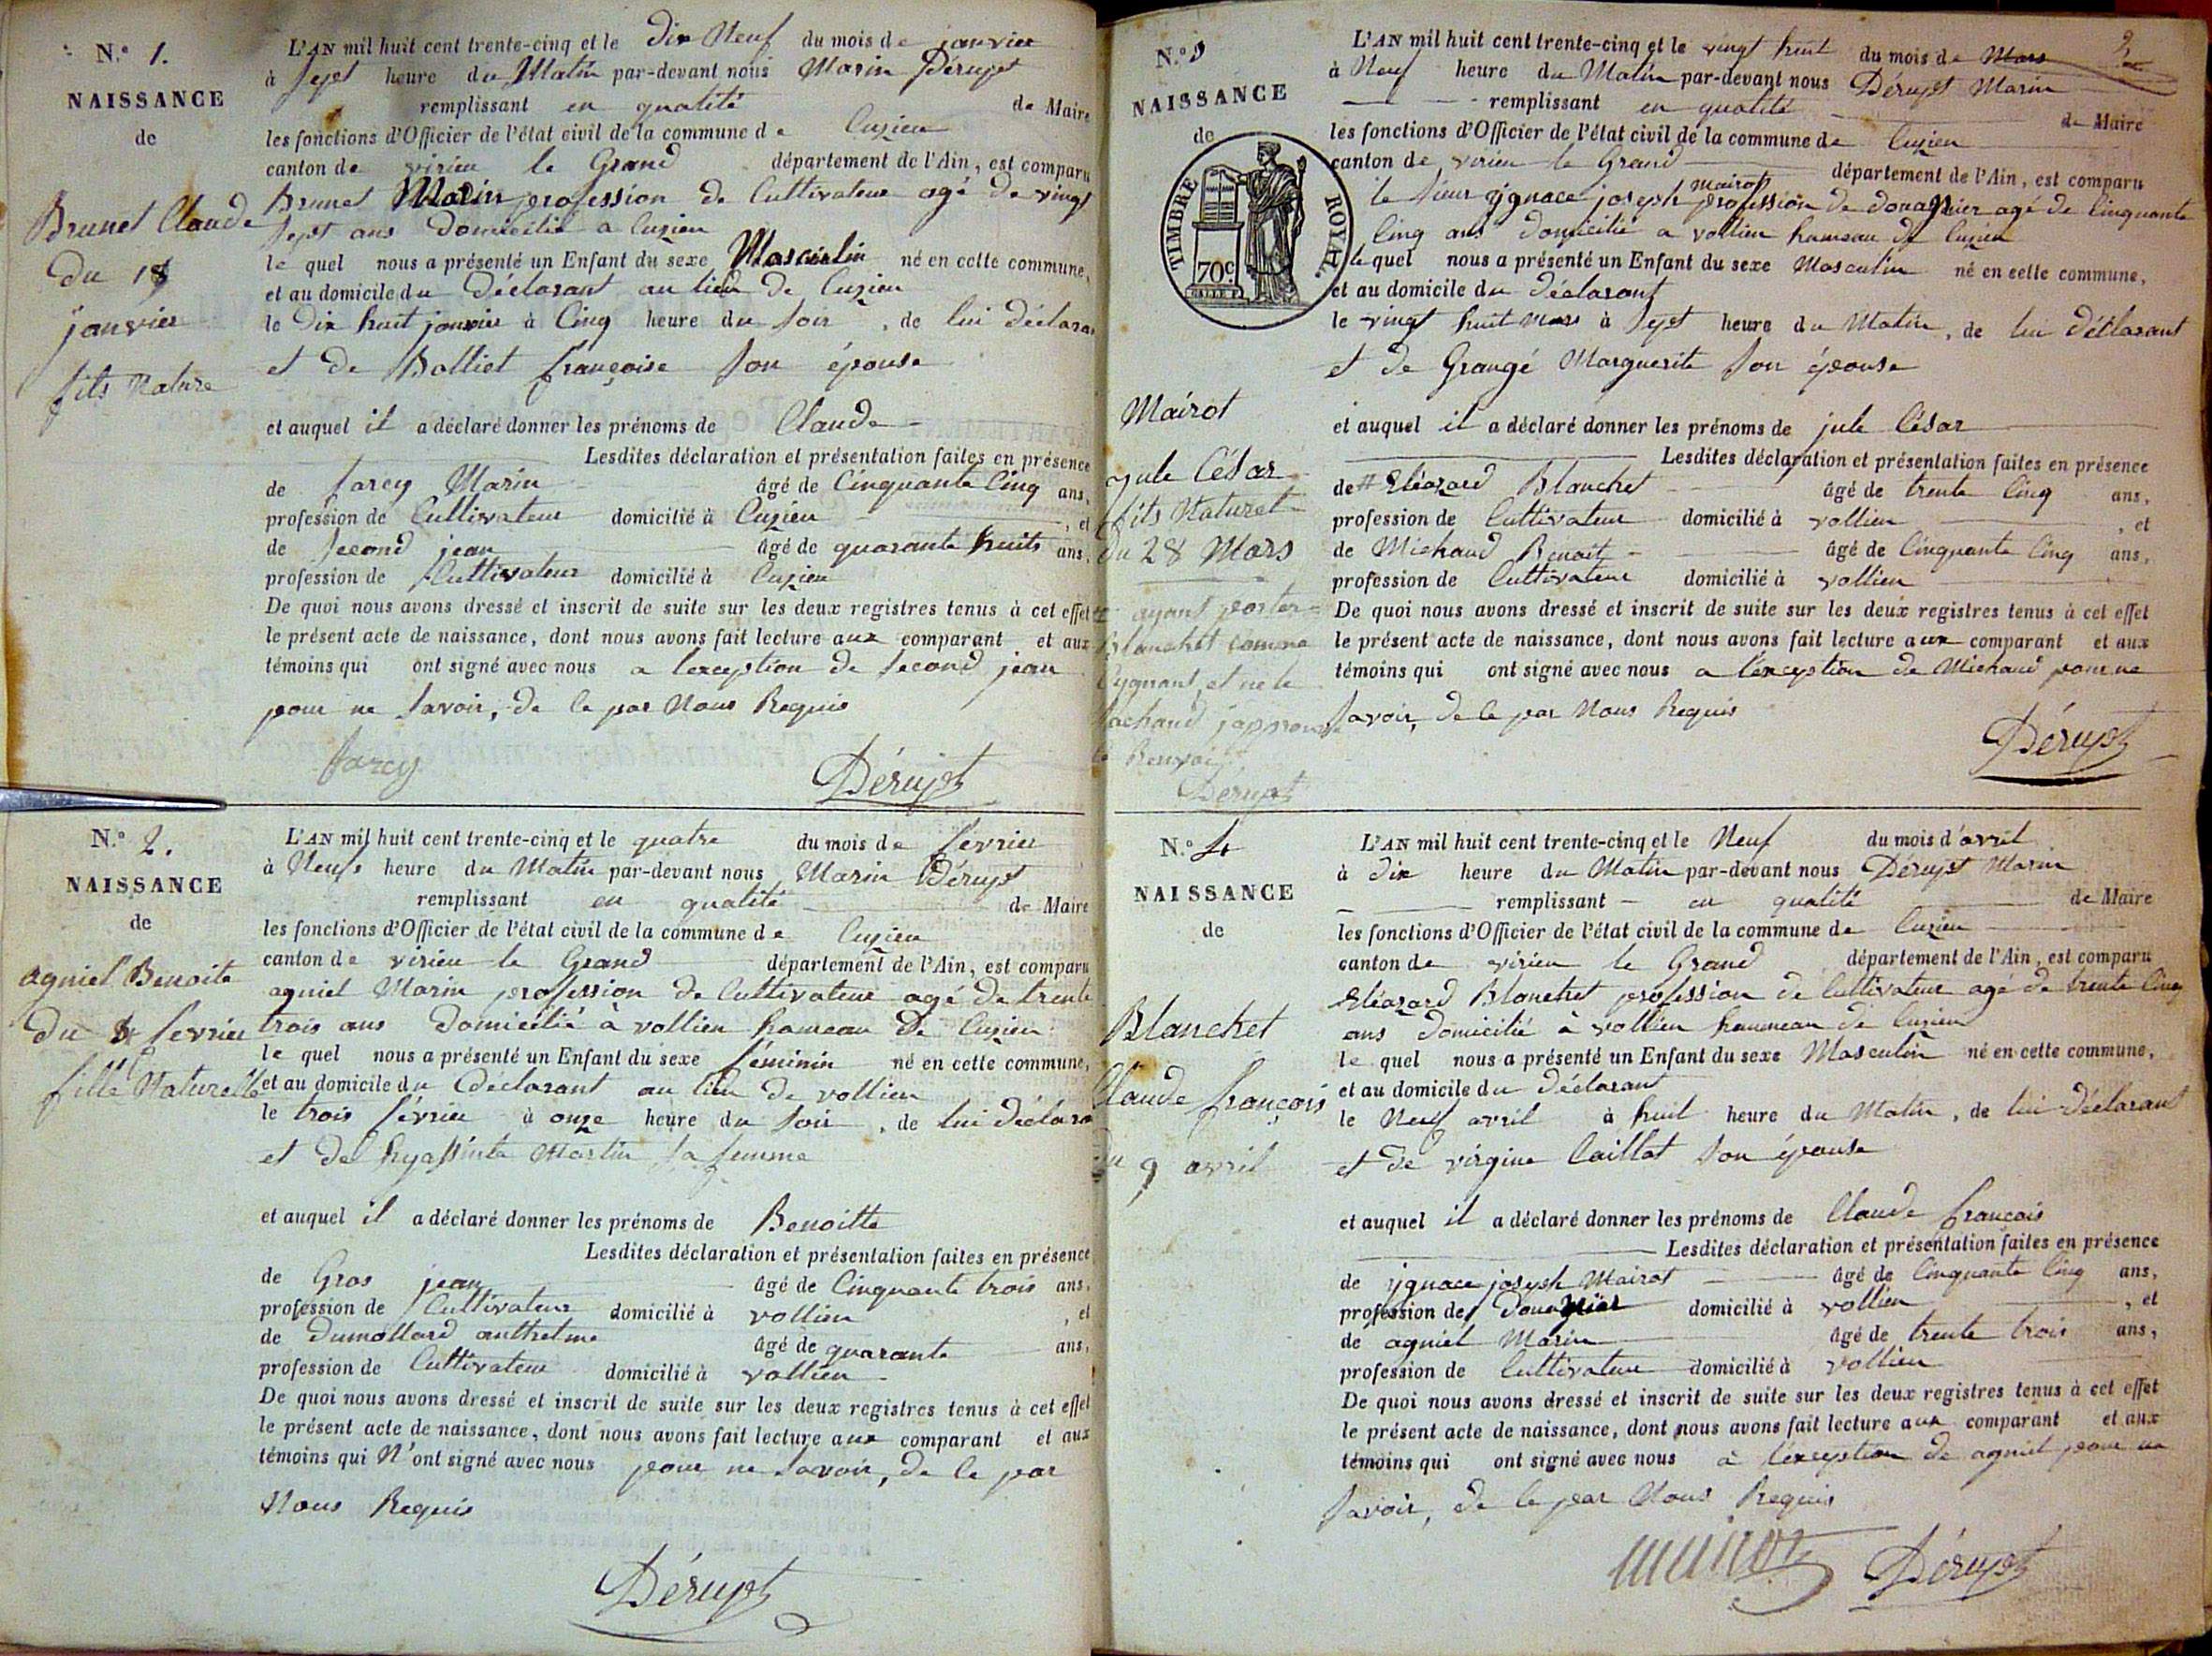 N.º 1.
NAISSANCE
de
Brunet Claude
du 18
janvier
fils Nature
L'AN mil huit cent trente-cinq et le dix Neuf du mois de janvier
à Sept heure du Matin par-devant nous Marin Dérupt
remplissant en qualité de Maire
les fonctions d'Officier de l'état civil de la commune de Cuzieu
canton de virieu le Grand département de l'Ain, est comparu
Brunet Marin profession de Cultivateur agé de vingt
Sept ans Domicilié a Cuzieu
le quel nous a présenté un Enfant du sexe Masculin né en cette commune,
et au domicile du Déclarant au lieu de Cuzieu
le Dix huit janvier à Cinq heure du Soir, de lui Déclara
et de Balliet françoise Son épouse
et auquel il a déclaré donner les prénoms de Claude
Lesdites déclaration et présentation faites en présence
de Sarcy Marin âgé de Cinquante Cinq ans,
profession de Cultivateur domicilié à Cuzieu, et
de Second jean âgé de quarante huits ans,
profession de Cultivateur domicilié à Cuzieu
De quoi nous avons dressé et inscrit de suite sur les deux registres tenus à cet effet
le présent acte de naissance, dont nous avons fait lecture aux comparant et aux
témoins qui ont signé avec nous a l'exception de Second jean
pour ne Savoir, de ce par Nous Requis
Sarcy Dérupt
N.º 2.
NAISSANCE
de
agniel Benoite
du 3 fevrier
fille Naturelle
L'AN mil huit cent trente-cinq et le quatre du mois de fevrier
à Neufs heure du Matin par-devant nous Marin Dérupt
remplissant en qualité de Maire
les fonctions d'Officier de l'état civil de la commune de Cuzieu
canton de virieu le Grand département de l'Ain, est comparu
agniel Marin profession de Cultivateur agé de trente
trois ans Domicilié à vollien hameau de Cuzieu
le quel nous a présenté un Enfant du sexe féminin né en cette commune,
et au domicile du Déclarant au lieu de vollien
le trois février à onze heure du Soir, de lui Déclara
et de hyassinte Martin Sa femme
et auquel il a déclaré donner les prénoms de Benoitte
Lesdites déclaration et présentation faites en présence
de Gros jean âgé de Cinquante trois ans,
profession de Cultivateur domicilié à vollien, et
de Dumollard anthelme âgé de quarante ans,
profession de Cultivateur domicilié à vollien
De quoi nous avons dressé et inscrit de suite sur les deux registres tenus à cet effet
le présent acte de naissance, dont nous avons fait lecture aux comparant et aux
témoins qui N'ont signé avec nous pour ne Savoir, de ce par
Nous Requis
Dérupt
2
N.º 3
NAISSANCE
de
TIMBRE ROYAL.
70c
Mairot
jule César
fils Naturel
du 28 Mars
ayant porter
Blanchet comme
Sygnant, et ne le
Sachand japprouve
le Renvoi
Dérupt
L'AN mil huit cent trente-cinq et le vingt huit du mois de Mars
à Neuf heure du Matin par-devant nous Dérupt Marin
remplissant en qualité de Maire
les fonctions d'Officier de l'état civil de la commune de Cuzieu
canton de virieu le Grand département de l'Ain, est comparu
le Sieur ygnace joseph Mairot profession de Douagnier agé de Cinquante
Cinq ans domicilié a vollien hameau de Cuzieu
le quel nous a présenté un Enfant du sexe Masculin né en cette commune,
et au domicile du Déclarant
le vingt huit Mars à Sept heure du Matin, de lui Déclarant
et de Grangé Marguerite Son épouse
et auquel il a déclaré donner les prénoms de jule César
Lesdites déclaration et présentation faites en présence
de # Eléazard Blanchet âgé de trente Cinq ans,
profession de Cultivateur domicilié à vollien, et
de Michaud Benoit âgé de Cinquante Cinq ans,
profession de Cultivateur domicilié à vollien
De quoi nous avons dressé et inscrit de suite sur les deux registres tenus à cet effet
le présent acte de naissance, dont nous avons fait lecture aux comparant et aux
témoins qui ont signé avec nous a l'exception de Michaud pour ne
Savoir, de ce par Nous Requis
Dérupt
N.º 4
NAISSANCE
de
Blanchet
Claude françois
du 9 avril
L'AN mil huit cent trente-cinq et le Neuf du mois d'avril
à dix heure du Matin par-devant nous Dérupt Marin
remplissant en qualité de Maire
les fonctions d'Officier de l'état civil de la commune de Cuzieu
canton de virieu le Grand département de l'Ain, est comparu
Eléazard Blanchet profession de Cultivateur agé de trente Cinq
ans Domicilié à vollien hameau de Cuzieu
le quel nous a présenté un Enfant du sexe Masculin né en cette commune,
et au domicile du Déclarant
le Neuf avril à huit heure du Matin, de lui Déclarant
et de virgine Caillat Son épouse
et auquel il a déclaré donner les prénoms de Claude françois
Lesdites déclaration et présentation faites en présence
de ygnace joseph Mairot âgé de Cinquante Cinq ans,
profession de Douagnier domicilié à vollien, et
de agniel Marin âgé de trente trois ans,
profession de Cultivateur domicilié à vollien
De quoi nous avons dressé et inscrit de suite sur les deux registres tenus à cet effet
le présent acte de naissance, dont nous avons fait lecture aux comparant et aux
témoins qui ont signé avec nous à l'exception de agniel pour ne
Savoir, de ce par Nous Requis
mairot Dérupt